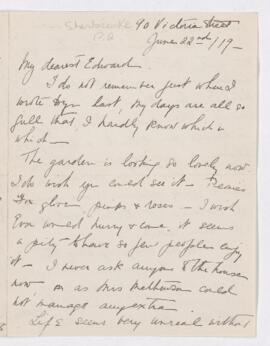 Sherbrooke 90 Victoria Street
P.Q. June 22nd/19-
My dearest Edward.
I do not remember just when I
wrote you last, my days are all so
full that, I hardly know which is
which—
The garden is looking so lovely now
I do wish you could see it— Peonies
Fox gloves, pinks & roses— I wish
Evn would hurry & come, it seems
a pity to have so few people enjoy
it— I never ask anyone to the house
now, as Mrs Mathewson could
not manage any extra.
Life seems very unreal without